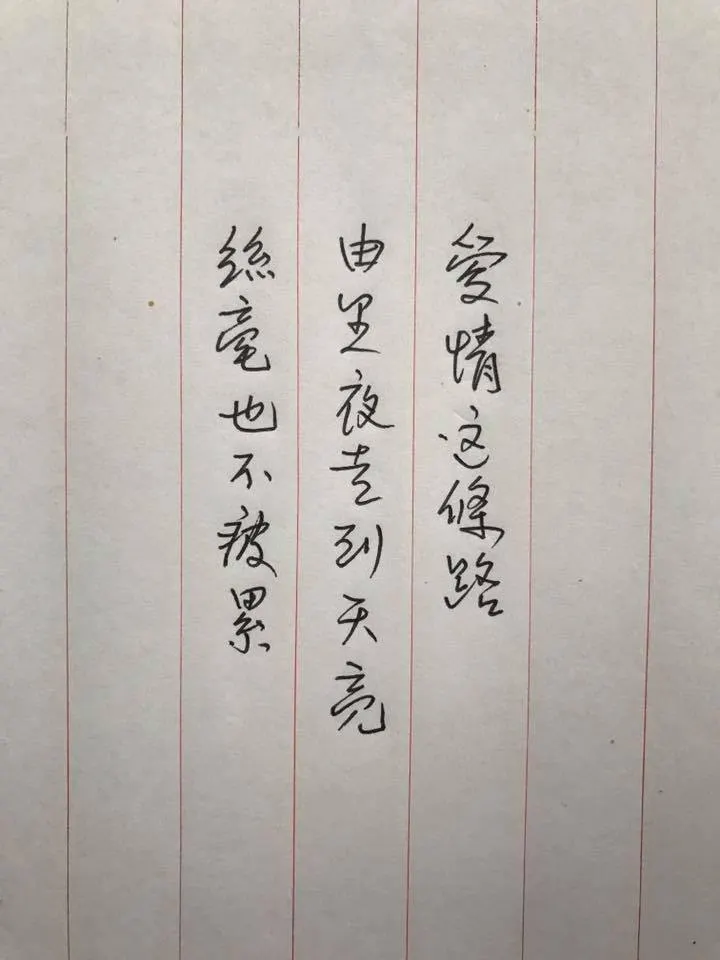 愛情这條路
由黑夜走到天亮
絲毫也不疲累